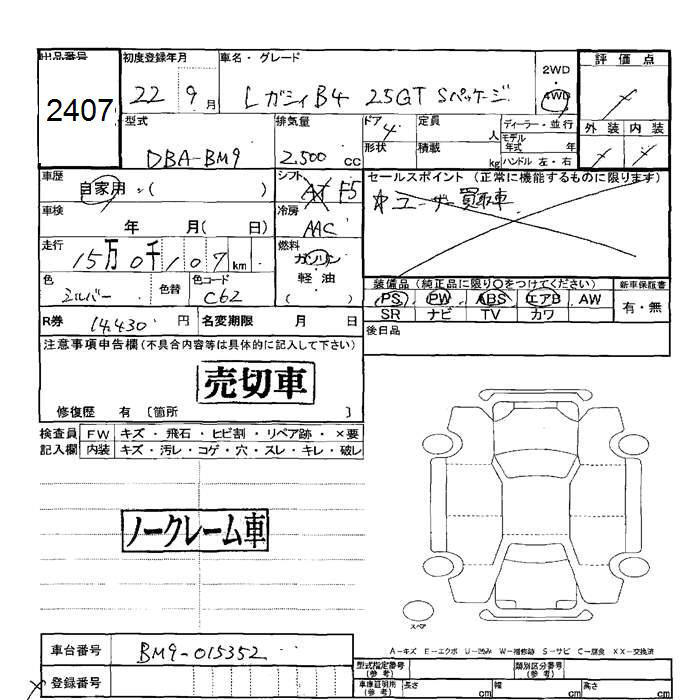 出品番号
2407
初度登録年月
22 9月
車名・グレード
レガシィB4 2.5GT Sパッケージ
2WD
4WD
評価点
型式
DBA-BM9
排気量
2.500 cc
ドア 4
定員 人
ディーラー・並行
形状
積載 kg
モデル年式 年
ハンドル 左・右
外装 内装
車歴
自家用・( )
シフト
AT F5
セールスポイント(正常に機能するものに限ります)
ユーザー買取車
車検
年 月( 日)
冷房
AAC
走行
15万0千107km
燃料
ガソリン
軽・油
( )
色
シルバー
色替
色コード
C62
装備品(純正品に限り○をつけてください)
新車保証書
PS・PW・ABS・エアB・AW
SR ナビ TV カワ
有・無
R券 14,430 円
名変期限 月 日
後日品
注意事項申告欄(不具合内容等は具体的に記入して下さい)
売切車
修復歴 有〔箇所 〕
検査員 FW キズ・飛石・ヒビ割・リペア跡・×要
記入欄 内装 キズ・汚レ・コゲ・穴・スレ・キレ・破レ
ノークレーム車
スペア
A-キズ E-エクボ U-凹み W-補修跡 S-サビ C-腐食 XX-交換済
車台番号 BM9-015352
登録番号
型式指定番号(参考)
類別区分番号(参考)
車庫証明用(参考) 長さ cm 幅 cm 高さ cm